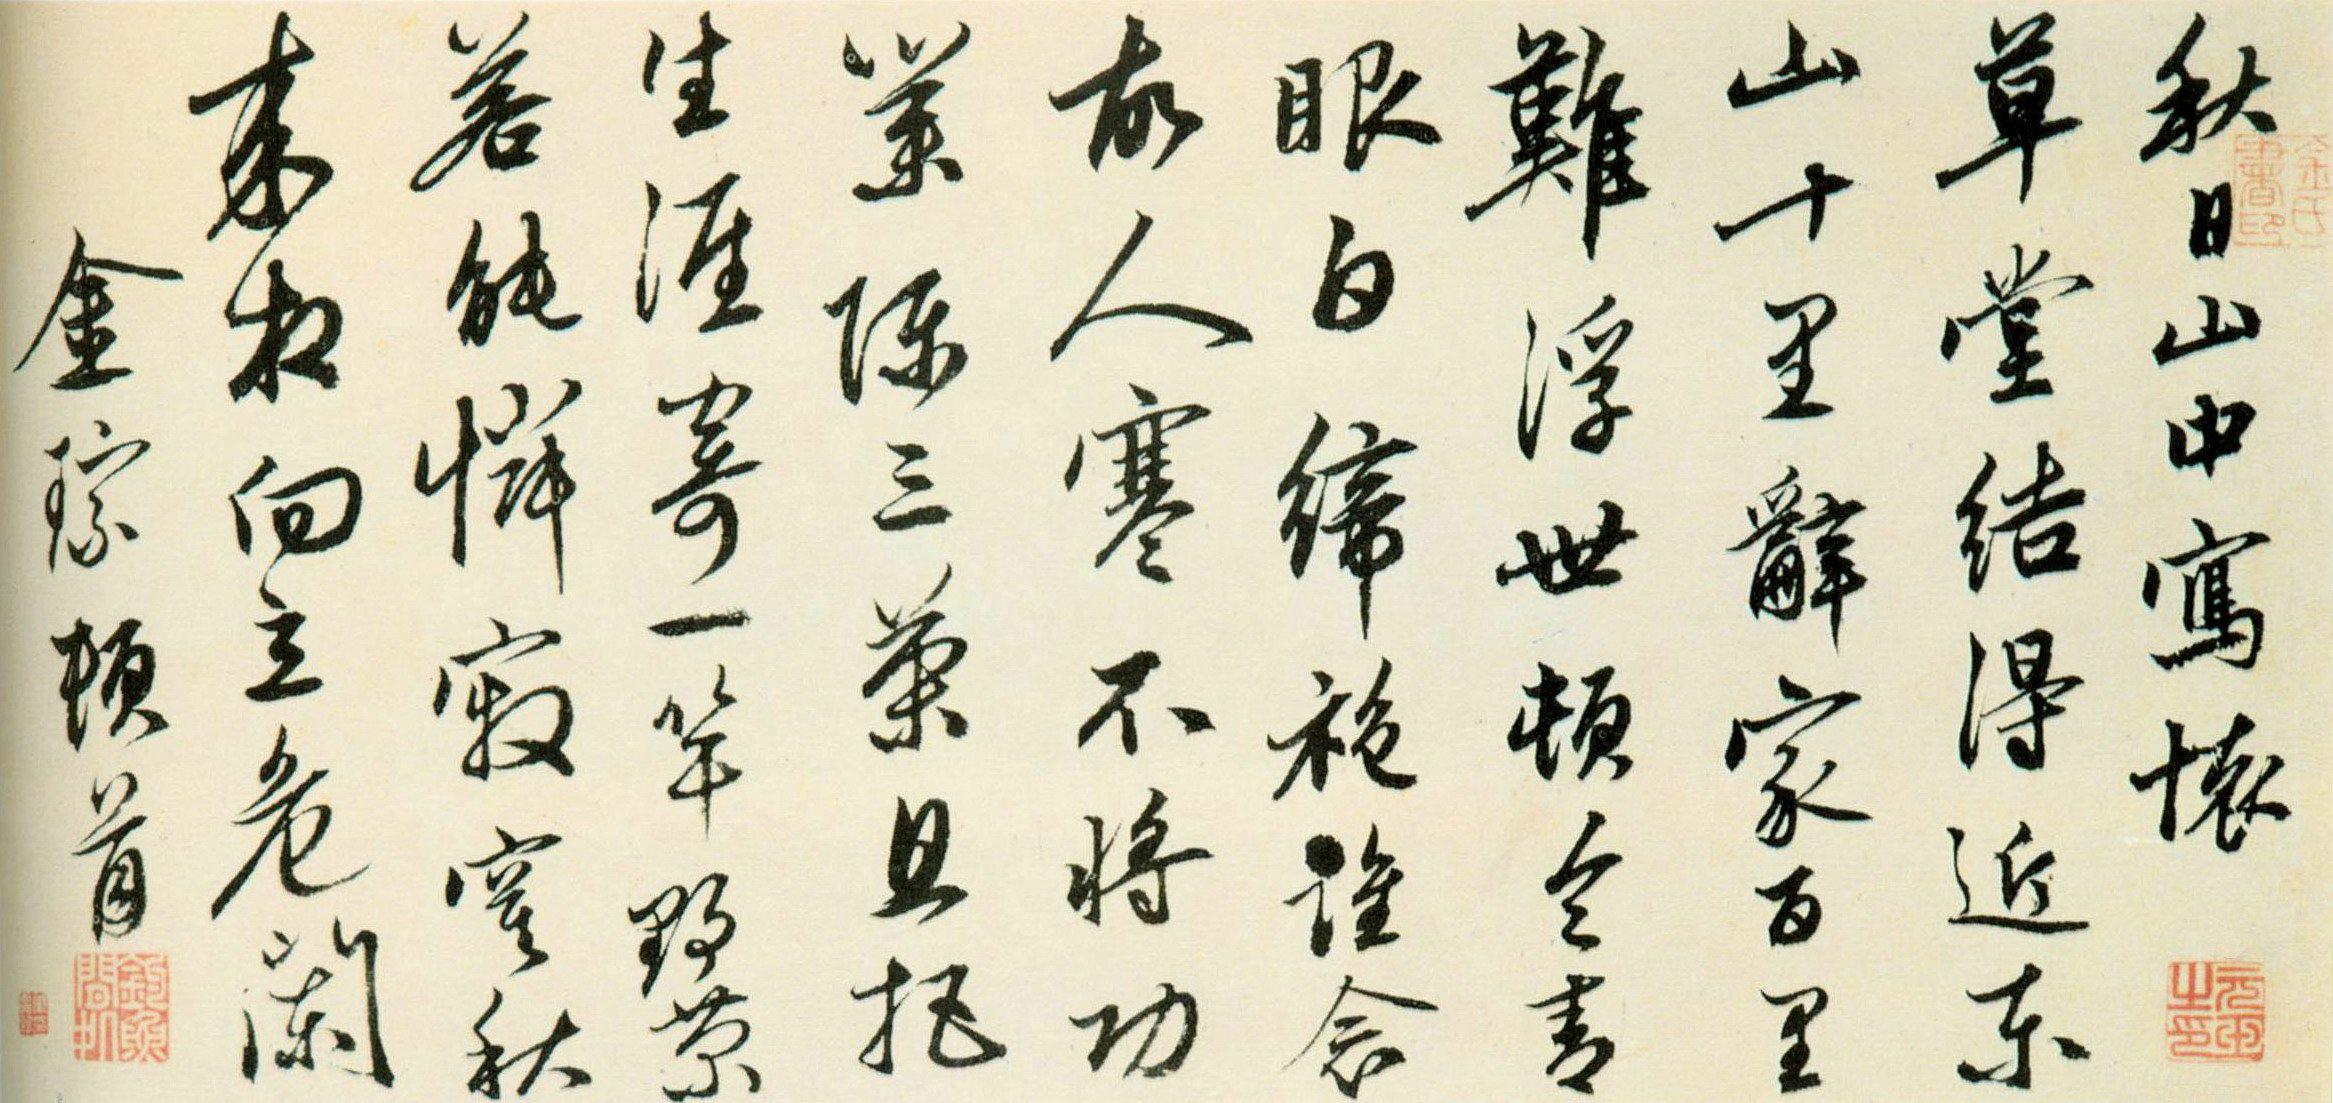 秋日山中寫懷
草堂結得近東
山十里辭家百里
難浮世頓令青
眼白綈袍誰念
故人寒不將功
業陳三策且把
生涯寄一竿野菊
若能憐寂寞秋
來相向立危闌
金琮頓首